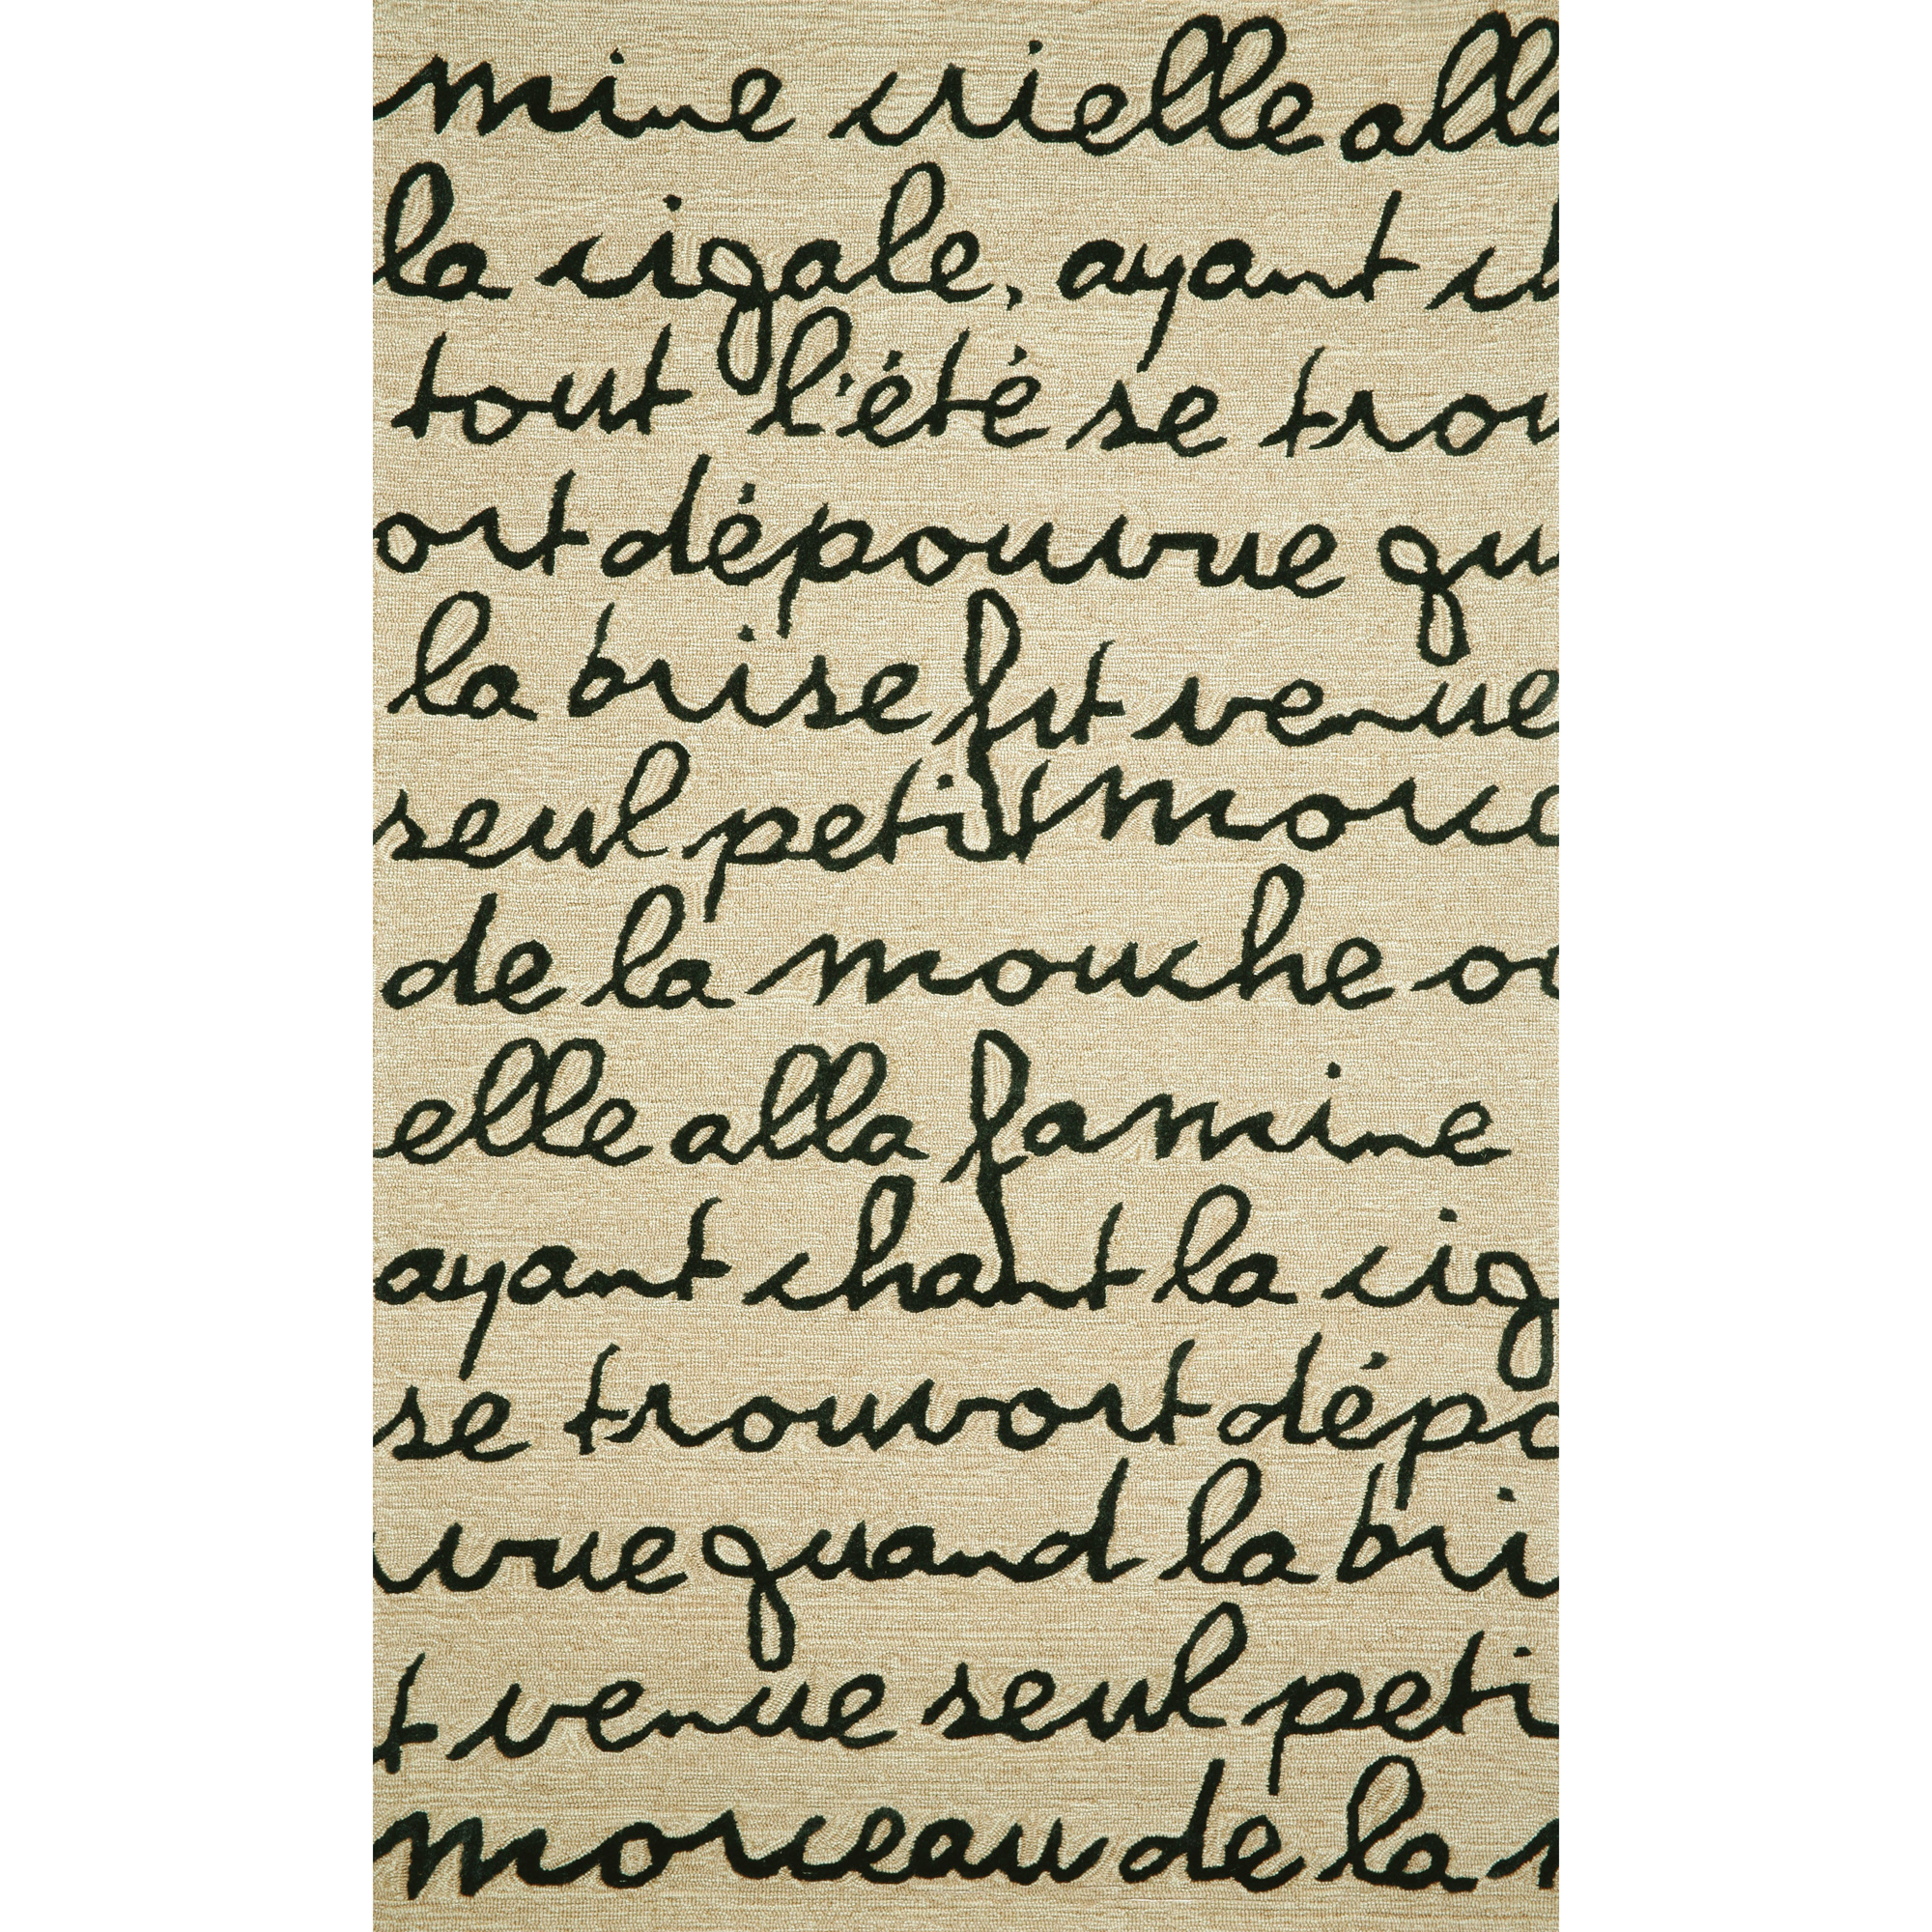 mine crielle alla
la cigale, ayant ch
tout l'été se trou
ort dépouvrue qu
la brise fut venue
seul petit morc
de la mouche ou
elle alla famine
ayant chant la cig
se trouvort dépo
uvrue quand la bri
t venue seul peti
morceau de la m